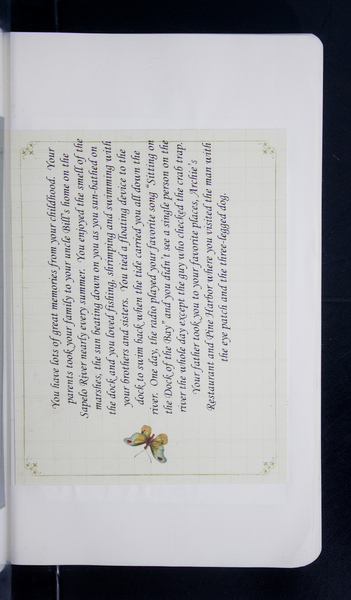 You have lots of great memories from your childhood.  Your
parents took your family to your uncle Bill's home on the
Sapelo River nearly every summer.  You enjoyed the smell of the
marshes, the sun beating down on you as you sun-bathed on
the dock and you loved fishing, shrimping and swimming with
your brothers and sisters.  You tied a floating device to the
dock to swim back when the tide carried you all down the
river.  One day, the radio played your favorite song "Sitting on
the Dock of the Bay" and you didn't see a single person on the
river the whole day except the guy who checked the crab trap.
Your father took you to your favorite places, Archie's
Restaurant and Pine Harbor where you visited the man with
the eye patch and the three-legged dog.